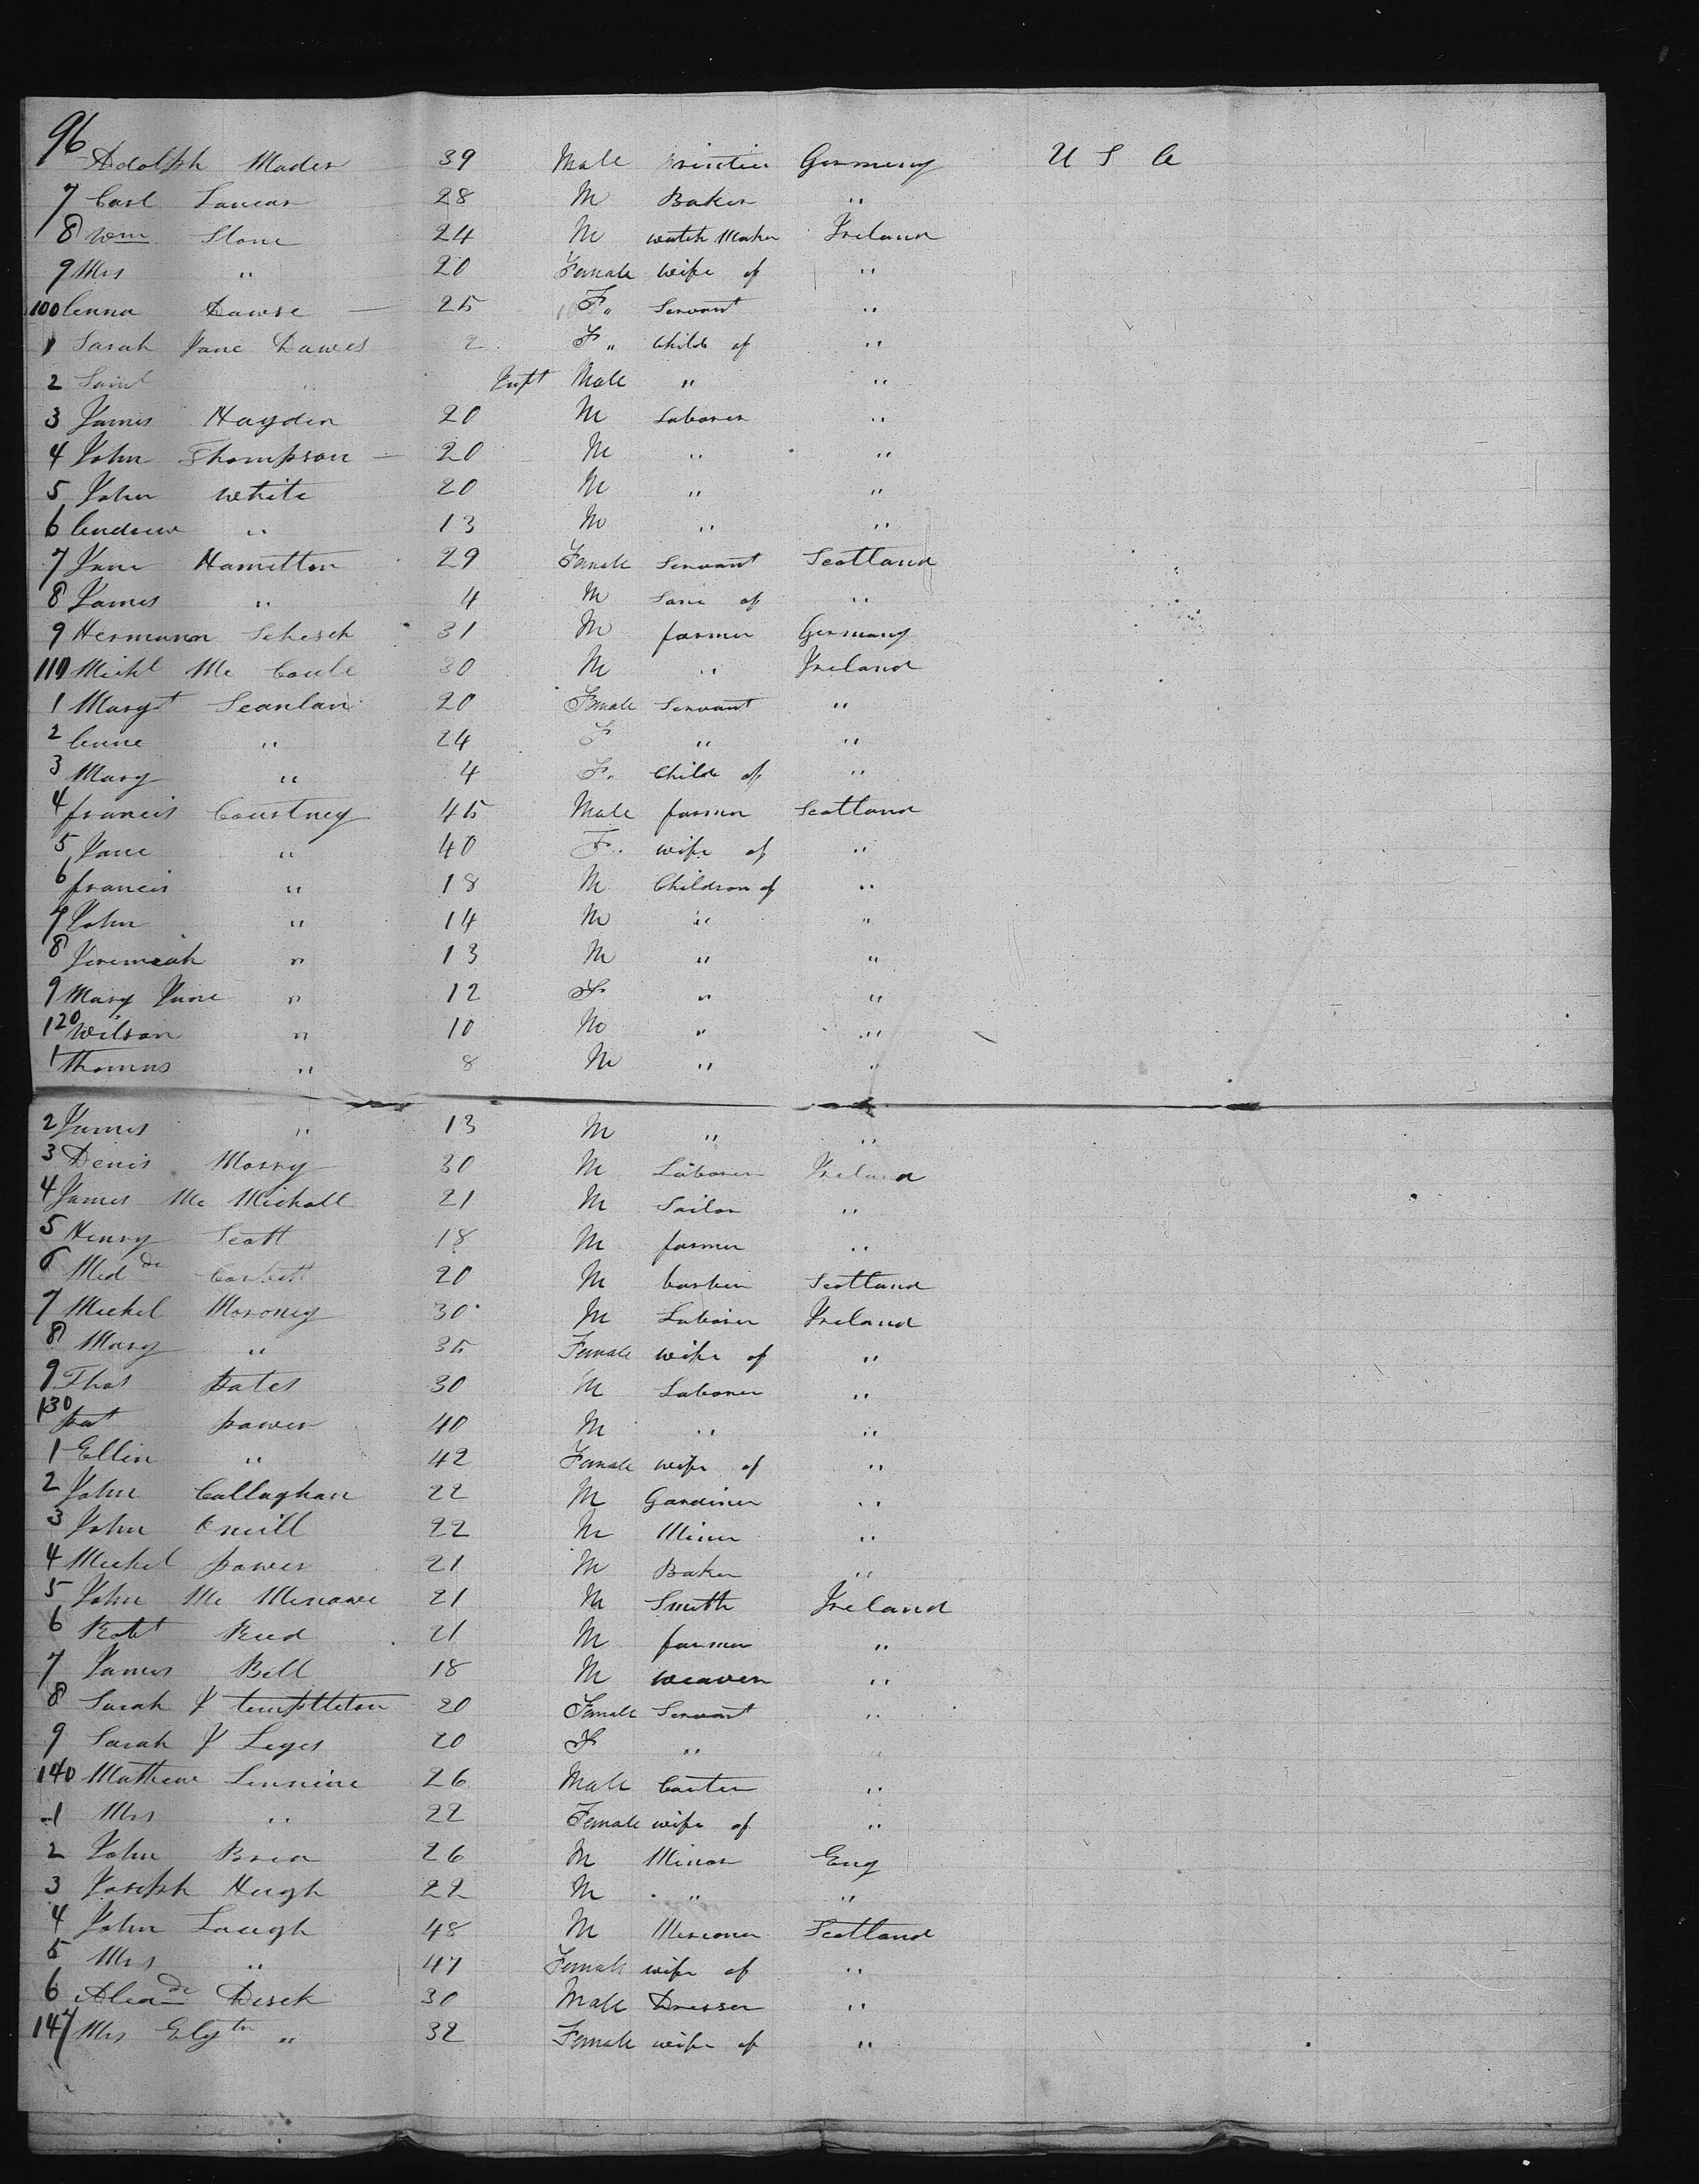 96 Adolph Mader 39 Male Germany U S A
7 Carl 28 M Baker "
8 Wm Stone 24 M watch Maker Ireland
9 Mrs " 20 Female wife of "
100 Anna Dawse 25 F " Servant "
1 Sarah Jane Dawes 2 F " Child of "
2 Saml " Inft Male " "
3 James Hayden 20 M Laborer "
4 John Thompson 20 M " "
5 John White 20 M " "
6 Andrew " 13 M " "
7 Jane Hamilton 29 Female Servant Scotland
8 James " 4 M Son of "
9 Hermann Schesch 31 M farmer Germany
110 Michl Mc Caule 30 M " Ireland
1 Margt Scanlan 20 Female Servant "
2 Anne " 24 F " "
3 Mary " 4 F. Child of "
4 francis Courtney 45 Male farmer Scotland
5 Jane " 40 F. wife of "
6 francis " 18 M Children of "
7 John " 14 M " "
8 Jeremiah " 13 M " "
9 Mary Jane " 12 F " "
120 Wilson " 10 M " "
1 Thomas " 8 M " "
2 James " 13 M " "
3 Denis Morry 30 M Laborer Ireland
4 James Mc Micholl 21 M Sailor "
5 Henry Scott 18 M farmer "
6 Corbett 20 M Scotland
7 Michel Moroney 30 M Laborer Ireland
8 Mary " 35 Female wife of "
9 Thos Bates 30 M Laborer "
130 pat power 40 M " "
1 Ellin " 42 Female wife of "
2 John Callaghan 22 M Gardiner "
3 John Oneill 22 M Miner "
4 Michel power 21 M Baker "
5 John Mc Menowe 21 M Smith Ireland
6 Robt Reed 21 M farmer "
7 James Bell 18 M weaver "
8 Sarah J tempttleton 20 Female Servant "
9 Sarah J Leges 20 F " "
140 Mathew Lennine 26 Male Carter "
1 Mrs " 22 Female wife of "
2 John Brien 26 M Minor Eng
3 Joseph Hugh 22 M " "
4 John Laugh 48 M Scotland
5 Mrs " 47 Female wife of "
6 Desch 30 Male Dresser "
147 Mrs " 32 Female wife of "